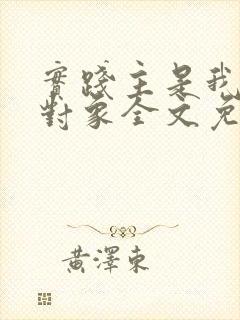 實踐主是我
對象全文免
黃澤東